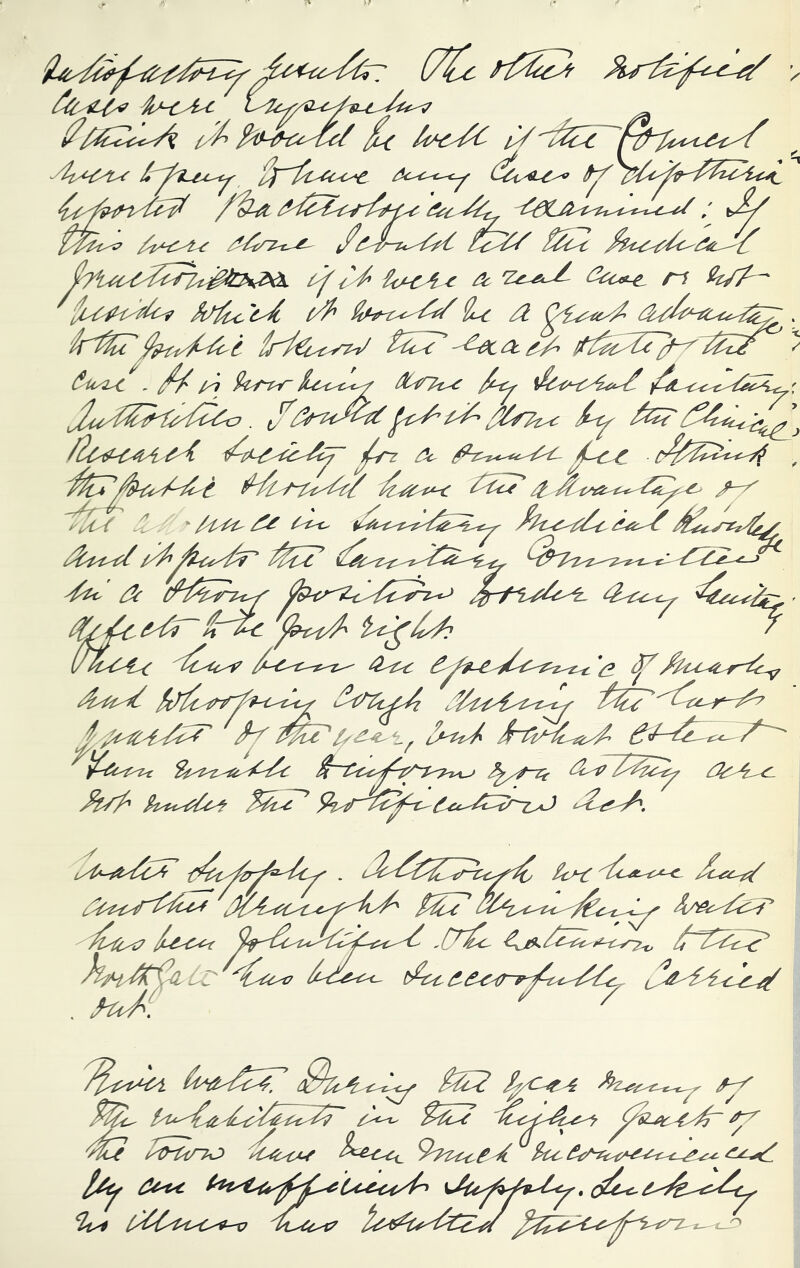 satisfactory results. The other notified
cases were Erysipelas
I think it would be well if the Council
were to pay to have any cases of diptheria
reported Bacteriologically examined: If
this were done I could tell the medical
if it were a real case or not
besides which it would be a great advantage
to the public to know the exact state of the
case. It is now being done by several Sanitary
Authorities. I could get it done by the Clinical
Research Society for a small fee. I think
the public should have the advantage of
the advance in Sanitary Medical Knowledge
and it puts the Sanitary Committee
in a strong position to order any Sanitary
defects to be put right.
There has been an epedemic of Measles
and whooping Cough during the last
quarter of the year, but to what extent
I am unable to inform you as they are
not under the notification Act.
Water Supply. Although we have had
another draught the drinking water
has been plentiful. The extension to the
North Gate has been successfully carried
out.
River Water. During the year many of
the inhabitants in the higher parts of
the town have been much inconvenienced
by an insufficient supply. Luckily
no illness has resulted therefrom